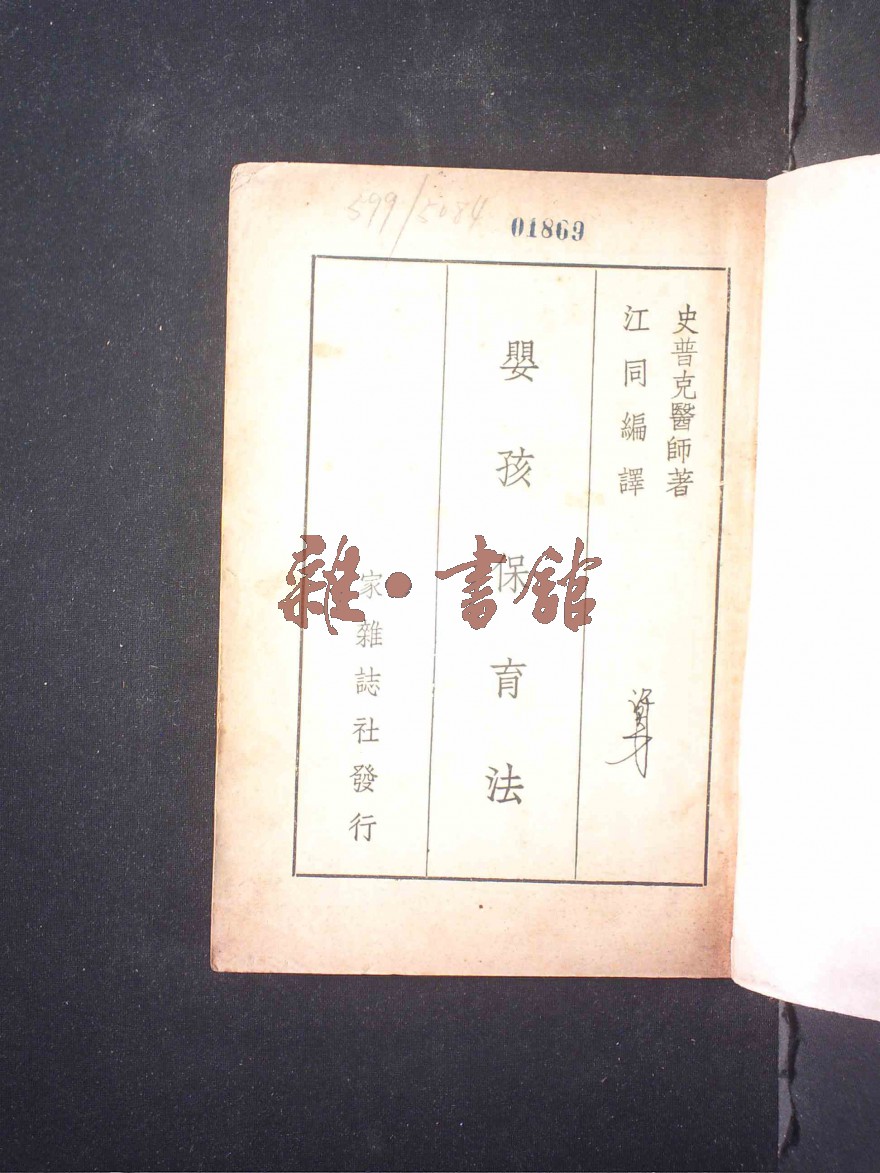 599/5084
01869
史普克醫師著
江同編譯
嬰孩保育法
家雜誌社發行
雜·書館